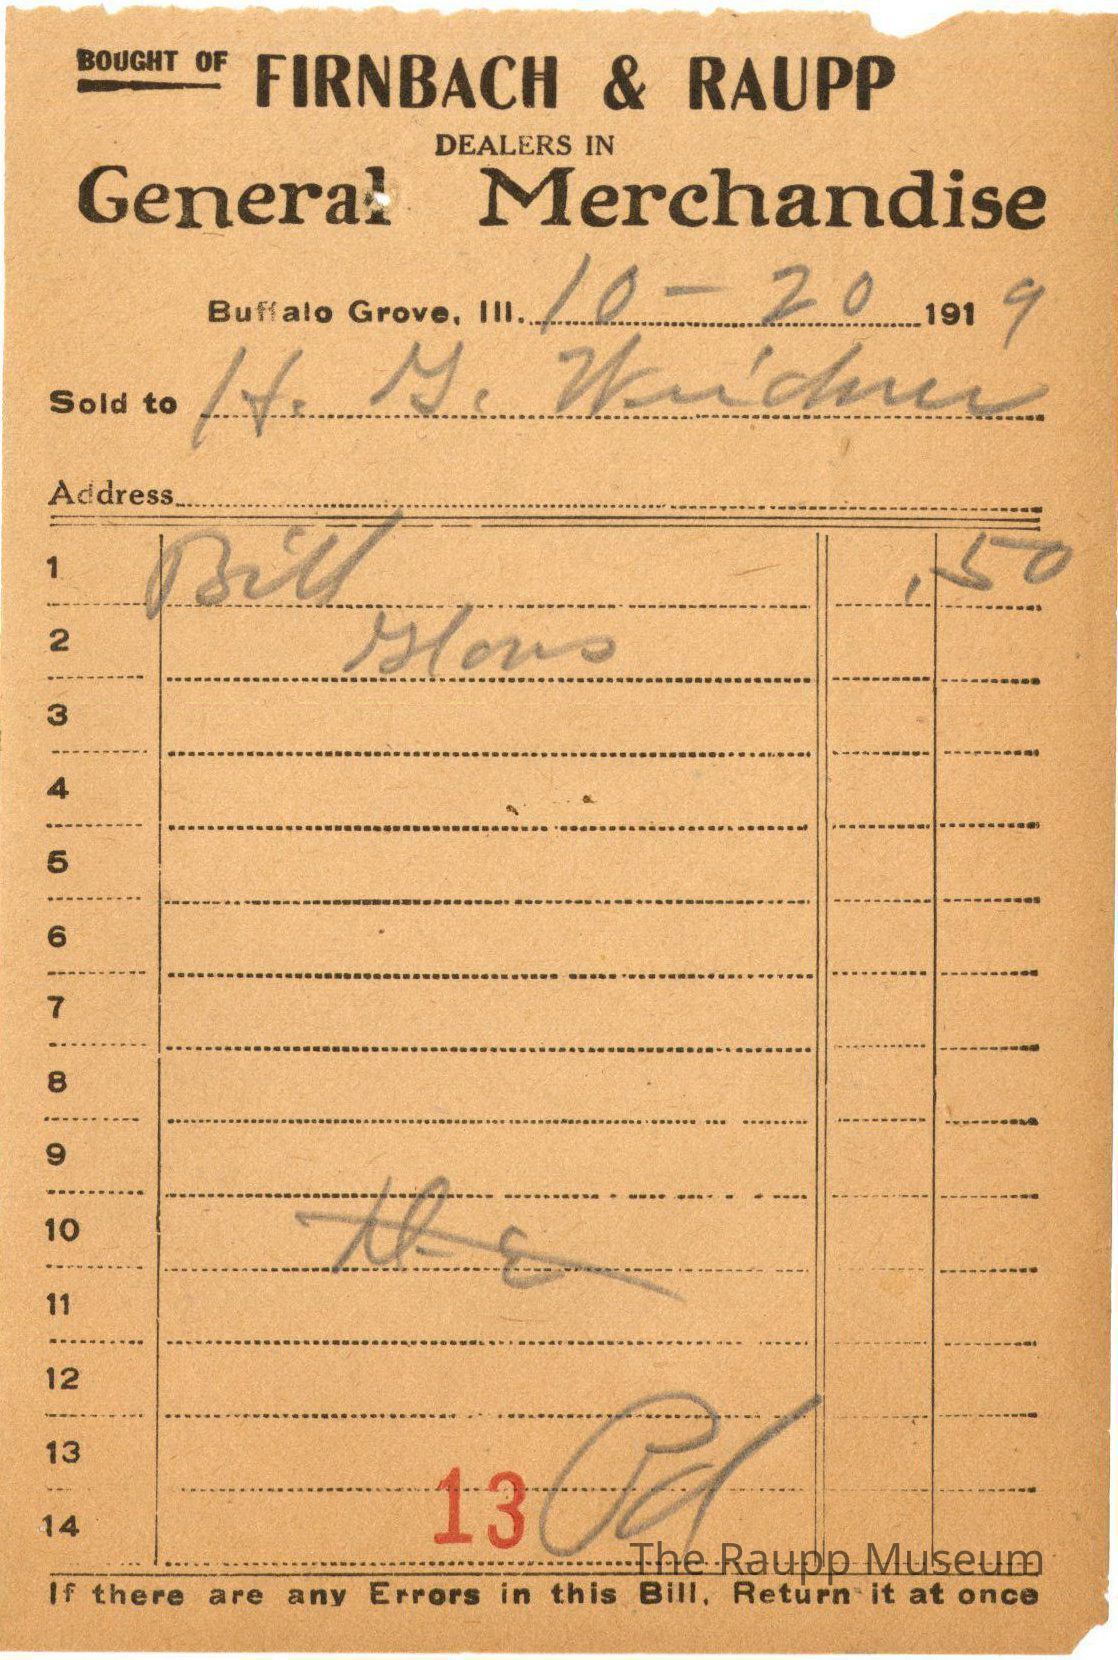 BOUGHT OF FIRNBACH & RAUPP
DEALERS IN
General Merchandise
Buffalo Grove, Ill. 10-20 1919
Sold to H. G. Weidner
Address
1 Bill .50
2 Glovs
3
4
5
6
7
8
9
10
11
12
13
13 Pd
14
The Raupp Museum
If there are any Errors in this Bill, Return it at once